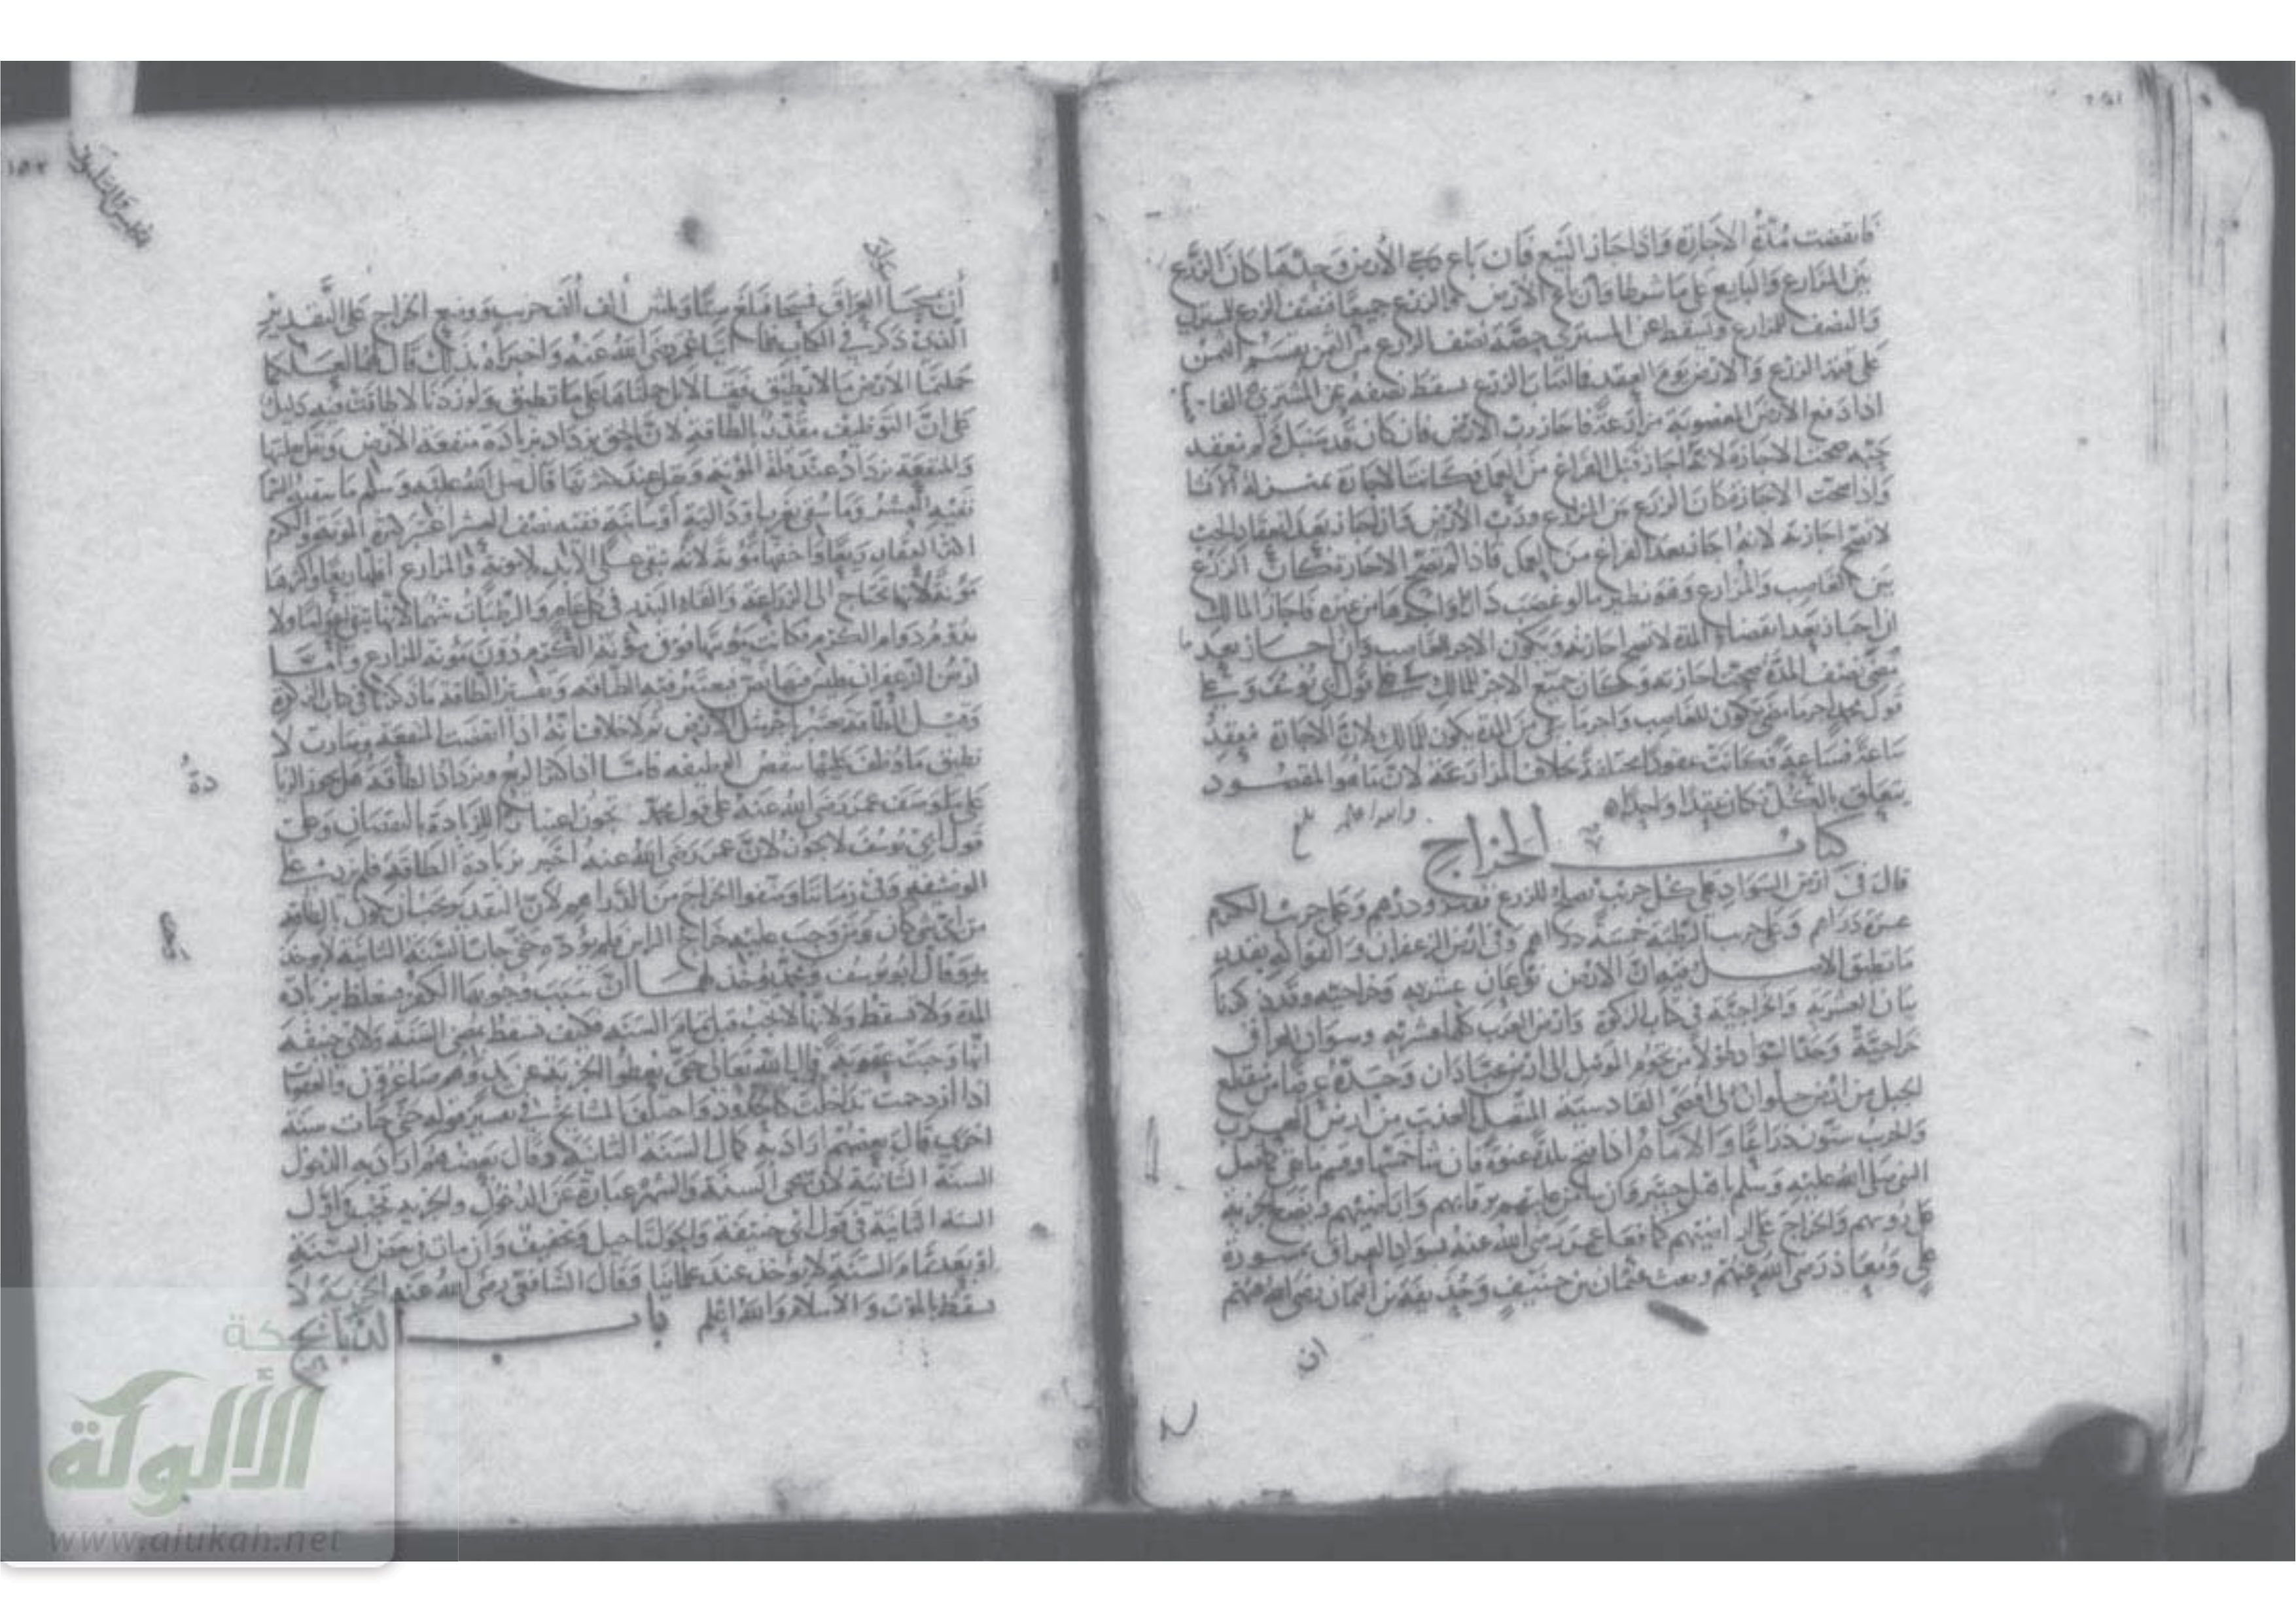 فانقضت مدة الاجارة واذا جاز البيع فان باع الارض وحدها كان الزرع
بين المزارع والبايع على ما شرطا وان باع الارض مع الزرع جميعا فنصف الزرع للمشتري
والنصف للمزارع ويسقط عن المشتري حصة نصف الزرع من الثمن يقسم الثمن
على قيمة الزرع والارض يوم العقد فما اصاب الزرع سقط نصفه عن المشتري
اذا دفع الارض المغصوبة مزارعة فاجاز رب الارض فان كان قد سنبل ولم يعقد
حبه صحت الاجازة لانه اجاز قبل الفراغ من العمل فكانت الاجازة بمنزلة
واذا صحت الاجازة كان الزرع بين المزارع ورب الارض وان اجاز بعد انعقاد الحب
لا تصح اجازته لانه اجاز بعد الفراغ من العمل فاذا لم تصح الاجازة كان الزرع
بين الغاصب والمزارع وهو نظير ما لو غصب دارا واجرها من غيره فاجاز المالك
ان اجاز بعد انقضاء المدة لا تصح اجازته ويكون الاجر للغاصب وان اجاز بعد ما
مضى نصف المدة صحت اجازته وكان جميع الاجر للمالك على قول ابي يوسف وعلى
قول محمد اجر ما مضى يكون للغاصب واجر ما بقي من المدة يكون للمالك لان الاجارة تنعقد
ساعة فساعة فكانت عقودا مختلفة بخلاف المزارعة لان ما هو المقصود
يتعلق بالكل فكان عقدا واحدا والله اعلم
كتاب الخراج
قال في ارض السواد على كل جريب يصلح للزرع قفيز ودرهم وعلى جريب الكرم
عشرة دراهم وعلى جريب الرطبة خمسة دراهم وفي ارض الزعفران والفواكه بقدر
ما تطيق الاصل فيه ان الارض نوعان عشرية وخراجية وقد ذكرنا
بيان العشرية والخراجية في كتاب الزكوة وارض العرب كلها عشرية وسواد العراق
خراجية وحد السواد طولا من تخوم الموصل الى ارض عبادان وحده عرضا من منقطع
الجبل من ارض حلوان الى اقصى القادسية المتصل بالعذيب من ارض العرب
والجريب ستون ذراعا والامام اذا فتح بلدة عنوة فان شاء خمسها وقسم ما بقي كما فعل
النبي صلى الله عليه وسلم باهل خيبر وان شاء من عليهم برقابهم واراضيهم ويضع الجزية
على رؤسهم والخراج على اراضيهم كما فعل عمر رضي الله عنه بسواد العراق بمشورة
علي ومعاذ رضي الله عنهم وبعث عثمان بن حنيف وحذيفة بن اليمان رضي الله عنهم
ان
ان يمسحا العراق فمسحا فبلغ ستا وثلثين الف الف جريب ووضع الخراج على التقدير
الذي ذكر في الكتاب فلما اتيا عمر رضي الله عنه واخبراه بذلك قال لهما لعلكما
حملتما الارض ما لا تطيق فقالا لا بل حملناها على ما تطيق ولو زدنا لاطاقت وفيه دليل
على ان التوظيف مقدر بالطاقة لان الحق يزداد بزيادة منفعة الارض ويقل بقلتها
والمنفعة تزداد عند قلة المؤنة وتقل عند كثرتها قال صلى الله عليه وسلم ما سقته السما
ففيه العشر وما سقي بغرب او دالية او سانية ففيه نصف العشر والكرم
اكثرها ريعا واخفها مؤنة لانه يبقى على الابد بلا مؤنة والمزارع اقلها ريعا واكثرها
مؤنة لانها تحتاج الى الزراعة والقاء البذر في كل عام والرطبات بينهما لانها تبقى اعواما ولا
تدوم دوام الكرم فكانت مؤنتها فوق مؤنة الكرم دون مؤنة المزارع واما
ارض الزعفران فليس فيها نص فيعتبر فيه الطاقة وتفسير الطاقة ما ذكرنا في كتاب الزكوة
وقيل الطاقة
تطيق ما وظف عليها ينقص الوظيفة فاما اذا كثر الريع ويزداد الطاقة هل يجوز الزيا
دة
على توظيف عمر رضي الله عنه على قول محمد يجوز اعتبارا للزيادة بالنقصان وعلى
قول ابي يوسف لا يجوز لان عمر رضي الله عنه اخبر بزيادة الطاقة فلم يزد على
الوظيفة وفي زماننا وظفوا الخراج من الدراهم لان التقدير يجب ان يكون بالطاقة
من اي شي كان ومن وجب عليه خراج الراس فلم يؤد حتى جات السنة الثانية لا يوخذ
به وقال ابو يوسف ومحمد يوخذ لهما ان سبب وجوبها الكفر فيتغلظ بزيادة
المدة ولا تسقط ولانها لا تجب قبل تمام السنة فكيف تسقط بمضي السنة ولابي حنيفة
انها وجبت عقوبة قال الله تعالى حتى يعطوا الجزية عن يد وهم صاغرون والعقوبات
اذا ازدحمت تداخلت كالحدود واختلف المشايخ في تفسير قوله حتى جات سنة
اخرى قال بعضهم اراد به كمال السنة الثانية وقال بعضهم اراد به الدخول
السنة الثانية لان مجي السنة والشهر عبارة عن الدخول والجزية تجب في اول
السنة الثانية في قول ابي حنيفة والحول تاجيل وتخفيف وان مات في بعض السنة
او بعد تمام السنة لا يوخذ عند علمائنا وقال الشافعي رضي الله عنه الجزية لا
تسقط بالموت والاسلام والله اعلم باب
الألوكة
www.alukah.net